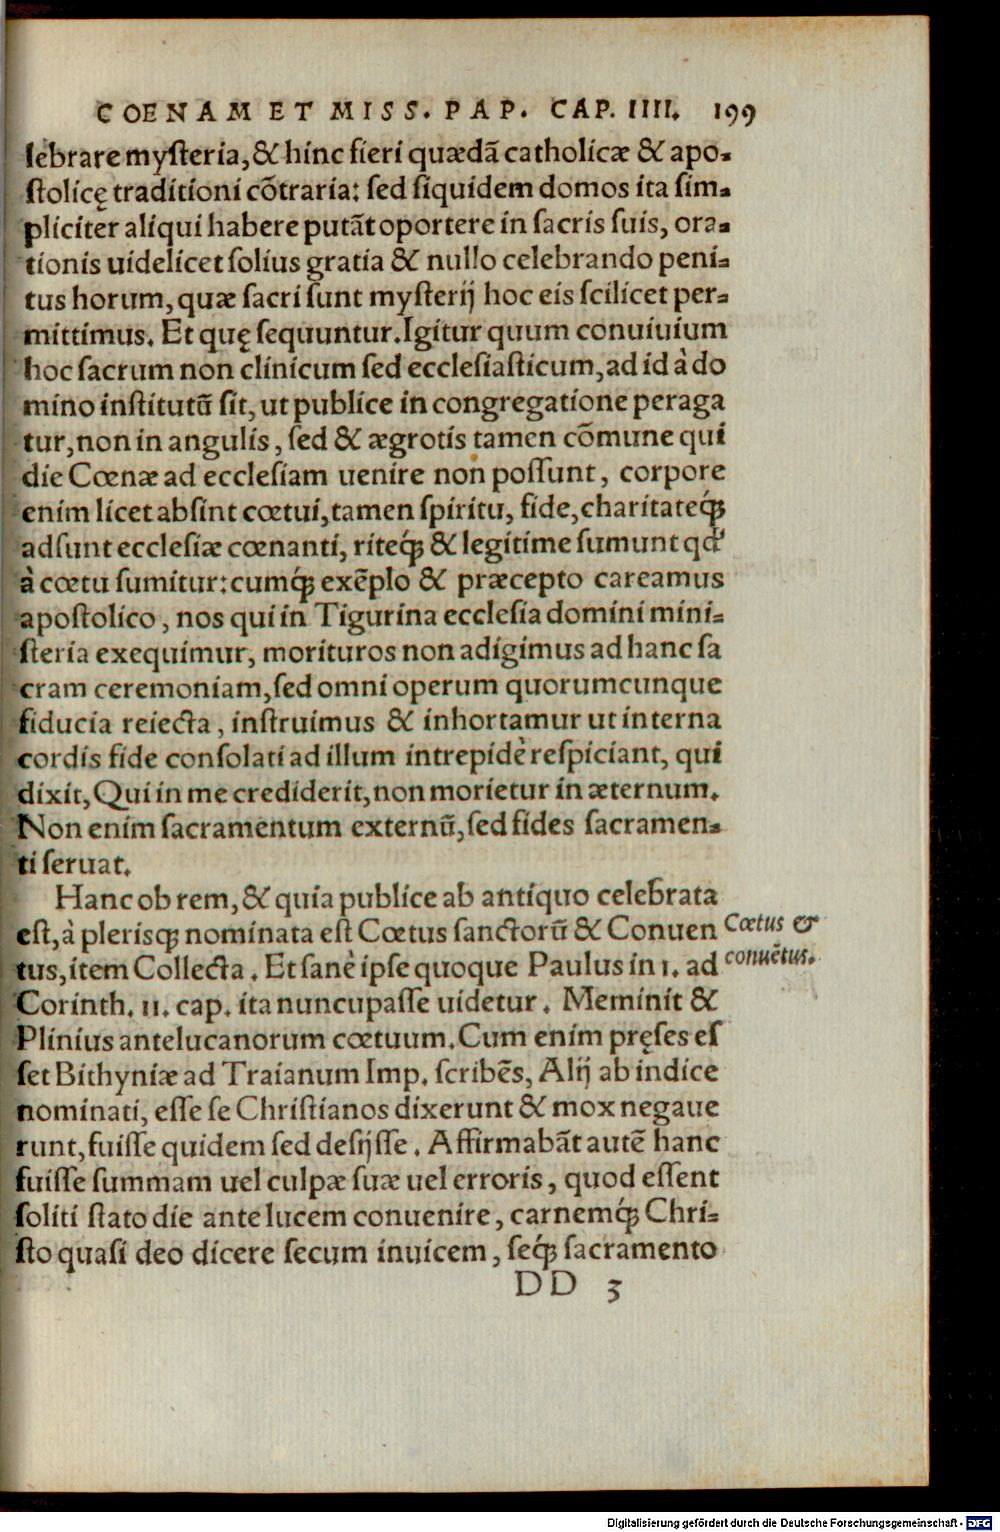 COENAM ET MISS. PAP. CAP. IIII. 199
lebrare mysteria, & hinc fieri quædā catholicæ & apo-
stolicę traditioni cōtraria: sed siquidem domos ita sim-
pliciter aliqui habere putāt oportere in sacris suis, ora-
tionis uidelicet solius gratia & nullo celebrando peni-
tus horum, quæ sacri sunt mysterij hoc eis scilicet per-
mittimus. Et quę sequuntur. Igitur quum conuiuium
hoc sacrum non clinicum sed ecclesiasticum, ad id à do
mino institutū sit, ut publice in congregatione peraga
tur, non in angulis, sed & ægrotis tamen cōmune qui
die Cœnæ ad ecclesiam uenire non possunt, corpore
enim licet absint cœtui, tamen spiritu, fide, charitateq́;
adsunt ecclesiæ cœnanti, riteq́; & legitime sumunt qd'
à cœtu sumitur: cumq́; exēplo & præcepto careamus
apostolico, nos qui in Tigurina ecclesia domini mini-
steria exequimur, morituros non adigimus ad hanc sa
cram ceremoniam, sed omni operum quorumcunque
fiducia reiecta, instruimus & inhortamur ut interna
cordis fide consolati ad illum intrepidè respiciant, qui
dixit, Qui in me crediderit, non morietur in æternum.
Non enim sacramentum externū, sed fides sacramen-
ti seruat.
Hanc ob rem, & quia publice ab antiquo celebrata
est, à plerisq; nominata est Cœtus sanctorū & Conuen
tus, item Collecta. Et sanè ipse quoque Paulus in 1. ad
Corinth. 11. cap. ita nuncupasse uidetur. Meminit &
Plinius antelucanorum cœtuum. Cum enim pręses es
set Bithyniæ ad Traianum Imp. scribēs, Alij ab indice
nominati, esse se Christianos dixerunt & mox negaue
runt, fuisse quidem sed desijsse. Affirmabāt autē hanc
fuisse summam uel culpæ suæ uel erroris, quod essent
soliti stato die ante lucem conuenire, carnemq́; Chri-
sto quasi deo dicere secum inuicem, seq́; sacramento
DD 3
Cœtus &
conuētus.
Digitalisierung gefördert durch die Deutsche Forschungsgemeinschaft - DFG